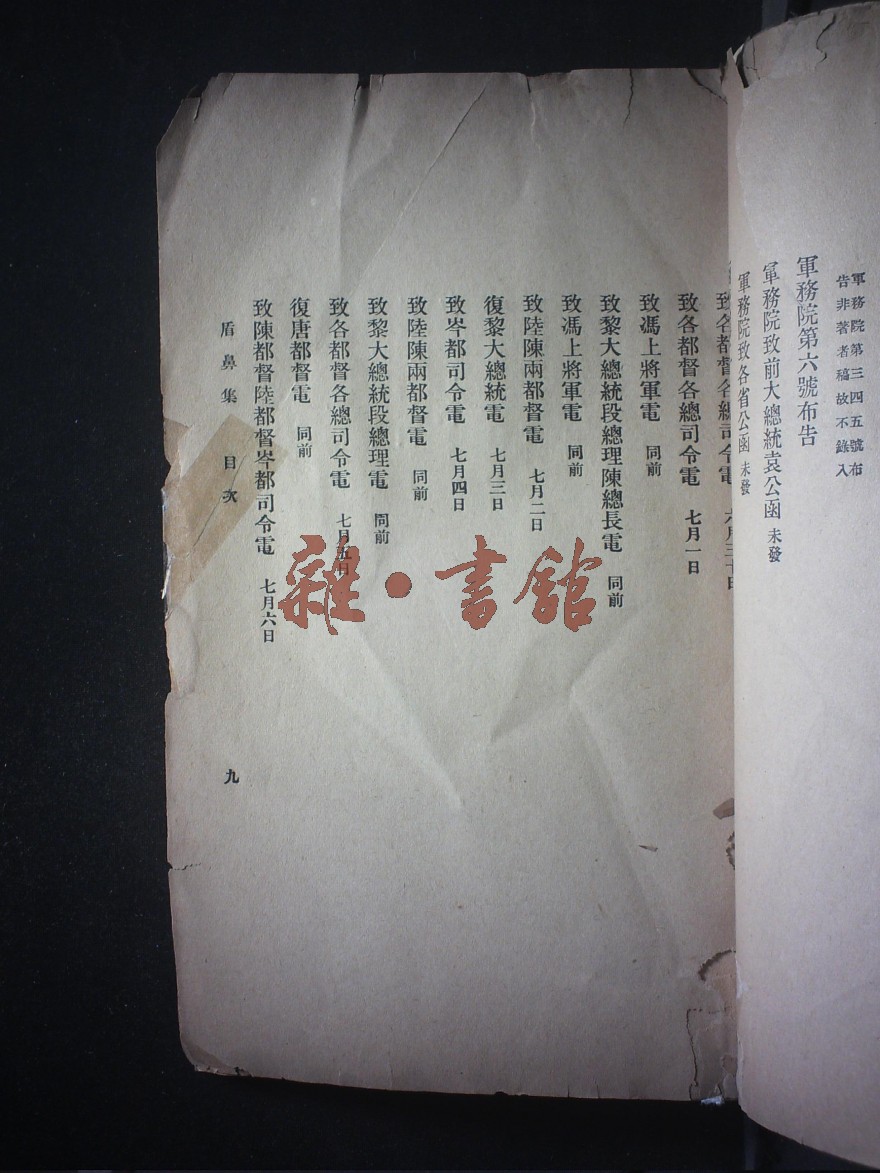 軍務院第三四五號布
告非著者稿故不錄入
軍務院第六號布告
軍務院致前大總統袁公函 未發
軍務院致各省公函 未發
致各都督各總司令電 六月三十日
致各都督各總司令電 七月一日
致馮上將軍電 同前
致黎大總統段總理陳總長電 同前
致馮上將軍電 同前
致陸陳兩都督電 七月二日
復黎大總統電 七月三日
致岑都司令電 七月四日
致陸陳兩都督電 同前
致黎大總統段總理電 同前
致各都督各總司令電 七月五日
復唐都督電 同前
致陳都督陸都督岑都司令電 七月六日
盾鼻集 目次
九
雜·書館